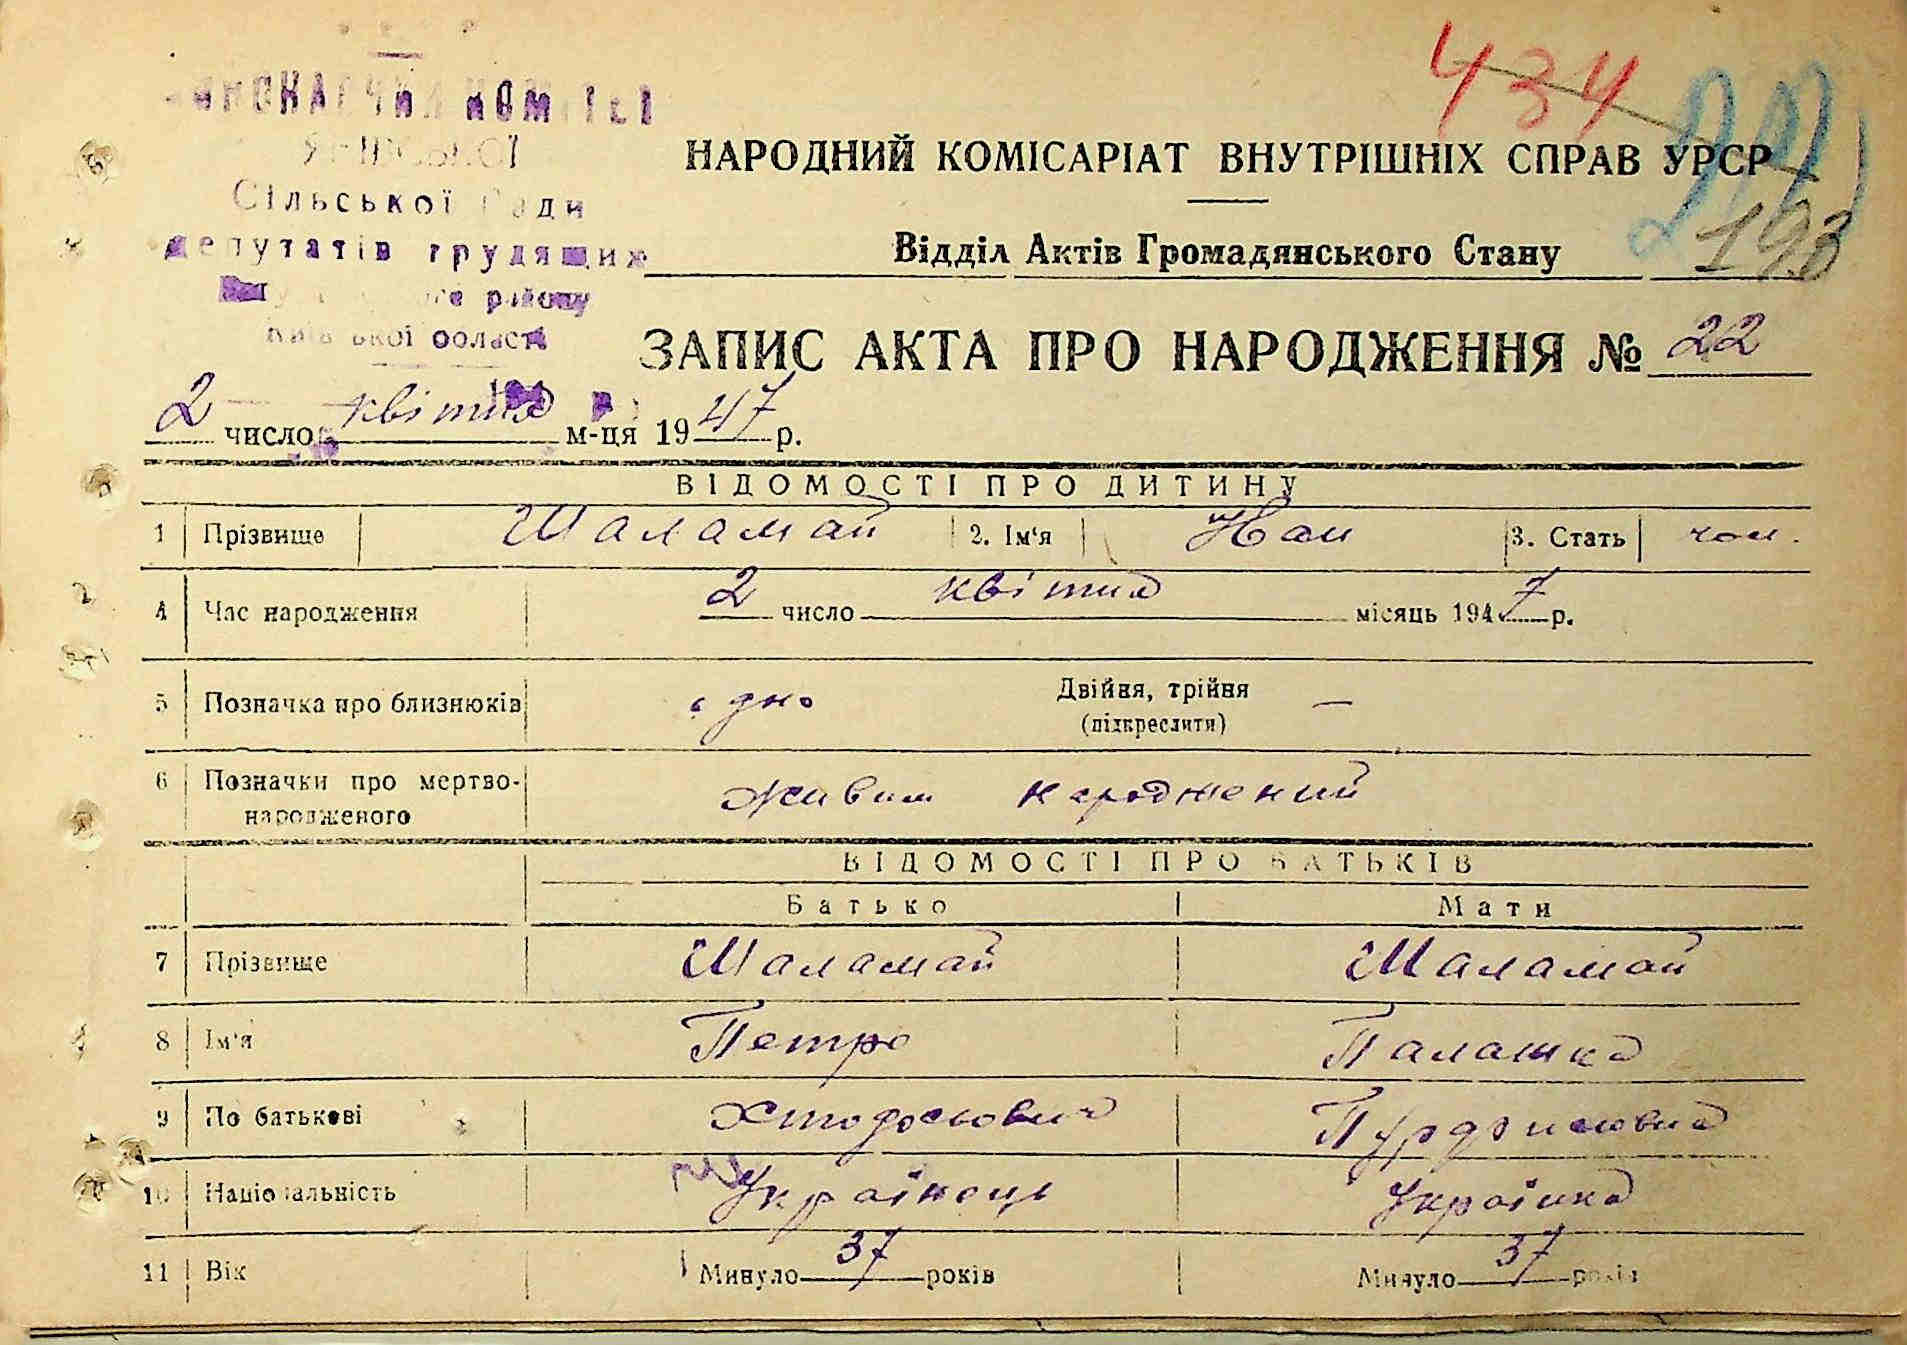 434
193
КОМІТЕТ
Сільської Ради
депутатів трудящих
району
Київської області
НАРОДНИЙ КОМІСАРІАТ ВНУТРІШНІХ СПРАВ УРСР
Відділ Актів Громадянського Стану
ЗАПИС АКТА ПРО НАРОДЖЕННЯ № 22
2 число квітня м-ця 1947 р.
ВІДОМОСТІ ПРО ДИТИНУ
1 Прізвище Шаламай 2. Ім'я 3. Стать чол.
4 Час народження 2 число квітня місяць 1947 р.
5 Позначка про близнюків одно Двійня, трійня —
(підкреслити)
6 Позначки про мертво- живим народжений
народженого
ВІДОМОСТІ ПРО БАТЬКІВ
Батько Мати
7 Прізвище Шаламай Шаламай
8 Ім'я Петро Палашка
9 По батькові
10 Національність Українець Українка
11 Вік Минуло 37 років Минуло 37 років